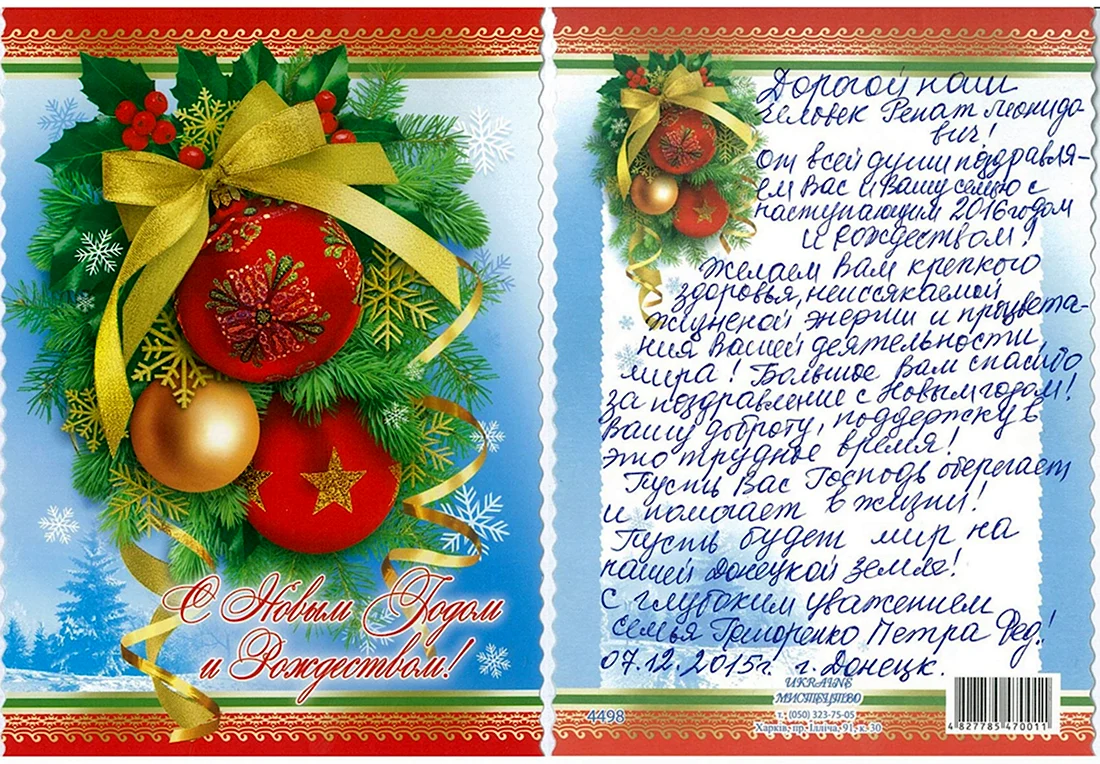 С Новым Годом
и Рождеством!
Дорогой наш
человек Ренат Леонидо-
вич!
От всей души поздравля-
ем Вас и Вашу семью с
наступающим 2016 годом
и рождеством!
Желаем Вам крепкого
здоровья, неиссякаемой
жизненной энергии и процвета-
ния вашей деятельности,
мира! Большое Вам спасибо
за поздравление с Новым годом!
Вашу доброту, поддержку в
это трудное время!
Пусть Вас Господь оберегает
и помогает в жизни!
Пусть будет мир на
нашей Донецкой земле!
С глубоким уважением
семья Петра Фед.!
07.12.2015г. г. Донецк.
UKRAINE
МИСТЕЦТВО
4498
т. (050) 323-75-05
Харків, пр. Ілліча, 91, к. 30
4 827785 470011